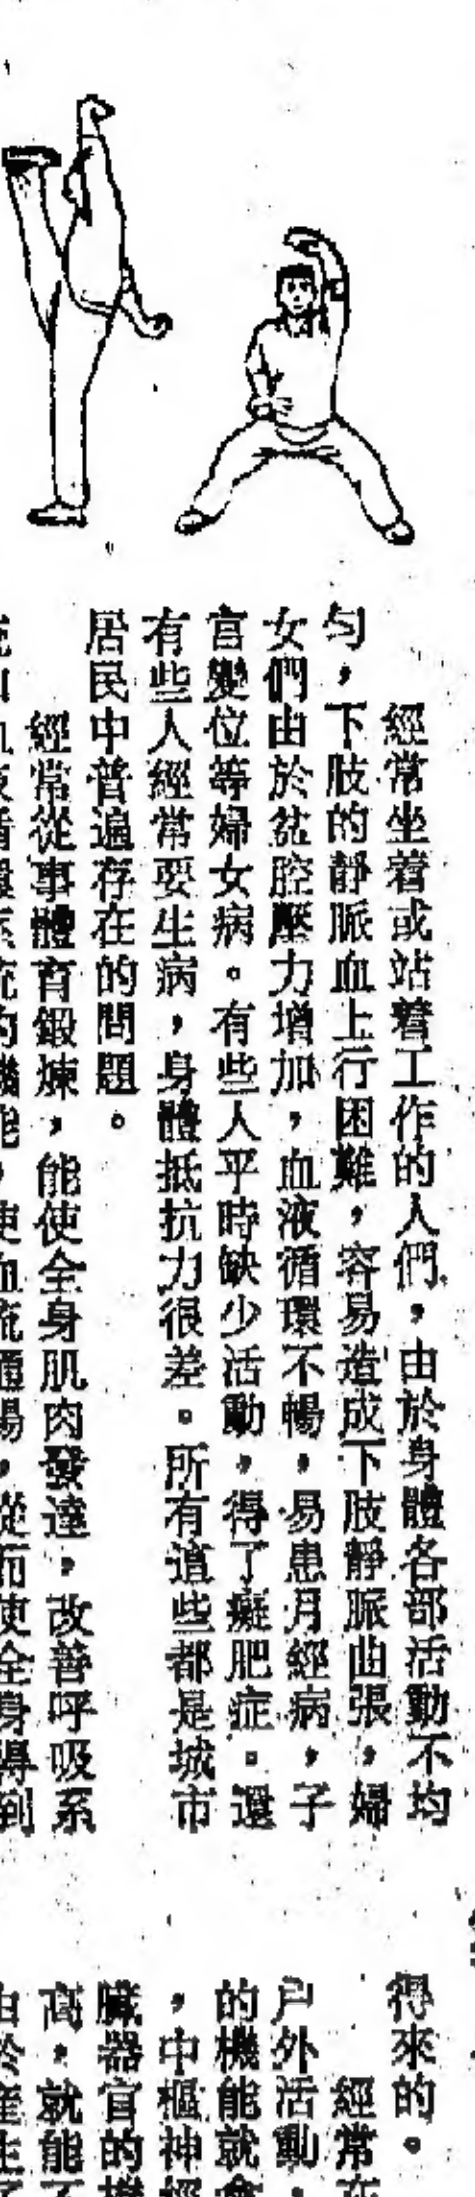 經常坐着或站着工作的人們，由於身體各部活動不均
勻，下肢的靜脈血上行困難，容易造成下肢靜脈曲張，婦
女們由於盆腔壓力增加，血液循環不暢，易患月經病，子
宮變位等婦女病。有些人平時缺少活動，得了癡肥症。還
有些人經常要生病，身體抵抗力很差。所有這些都是城市
居民中普遍存在的問題。
經常從事體育鍛煉，能使全身肌肉發達，改善呼吸系
統和血液循環系統的機能，使血流通暢，從而使全身得到
得來的。
經常在
戶外活動，
的機能就會
，中樞神經
臟器官的機
高，就能不
由於產生了